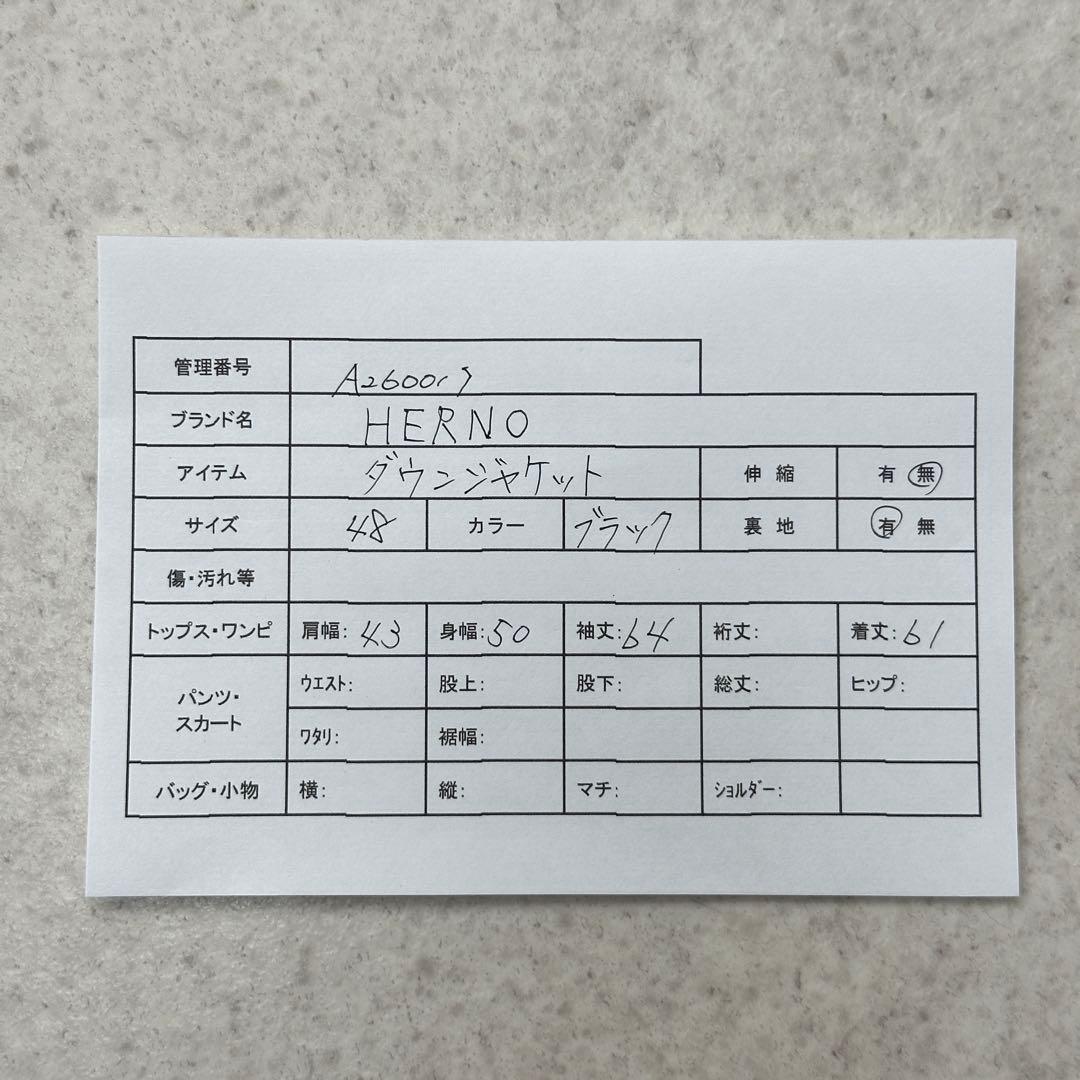 管理番号
ブランド名 HERNO
アイテム ダウンジャケット 伸縮 有 無
サイズ 48 カラー ブラック 裏地 有 無
傷・汚れ等
トップス・ワンピ 肩幅: 43 身幅: 50 袖丈: 64 裄丈: 着丈: 61
パンツ・スカート ウエスト: 股上: 股下: 総丈: ヒップ:
ワタリ: 裾幅:
バッグ・小物 横: 縦: マチ: ショルダー: